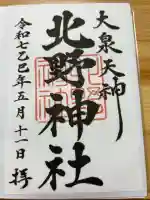 大泉天神
北野神社
令和七乙巳年五月十一日拝